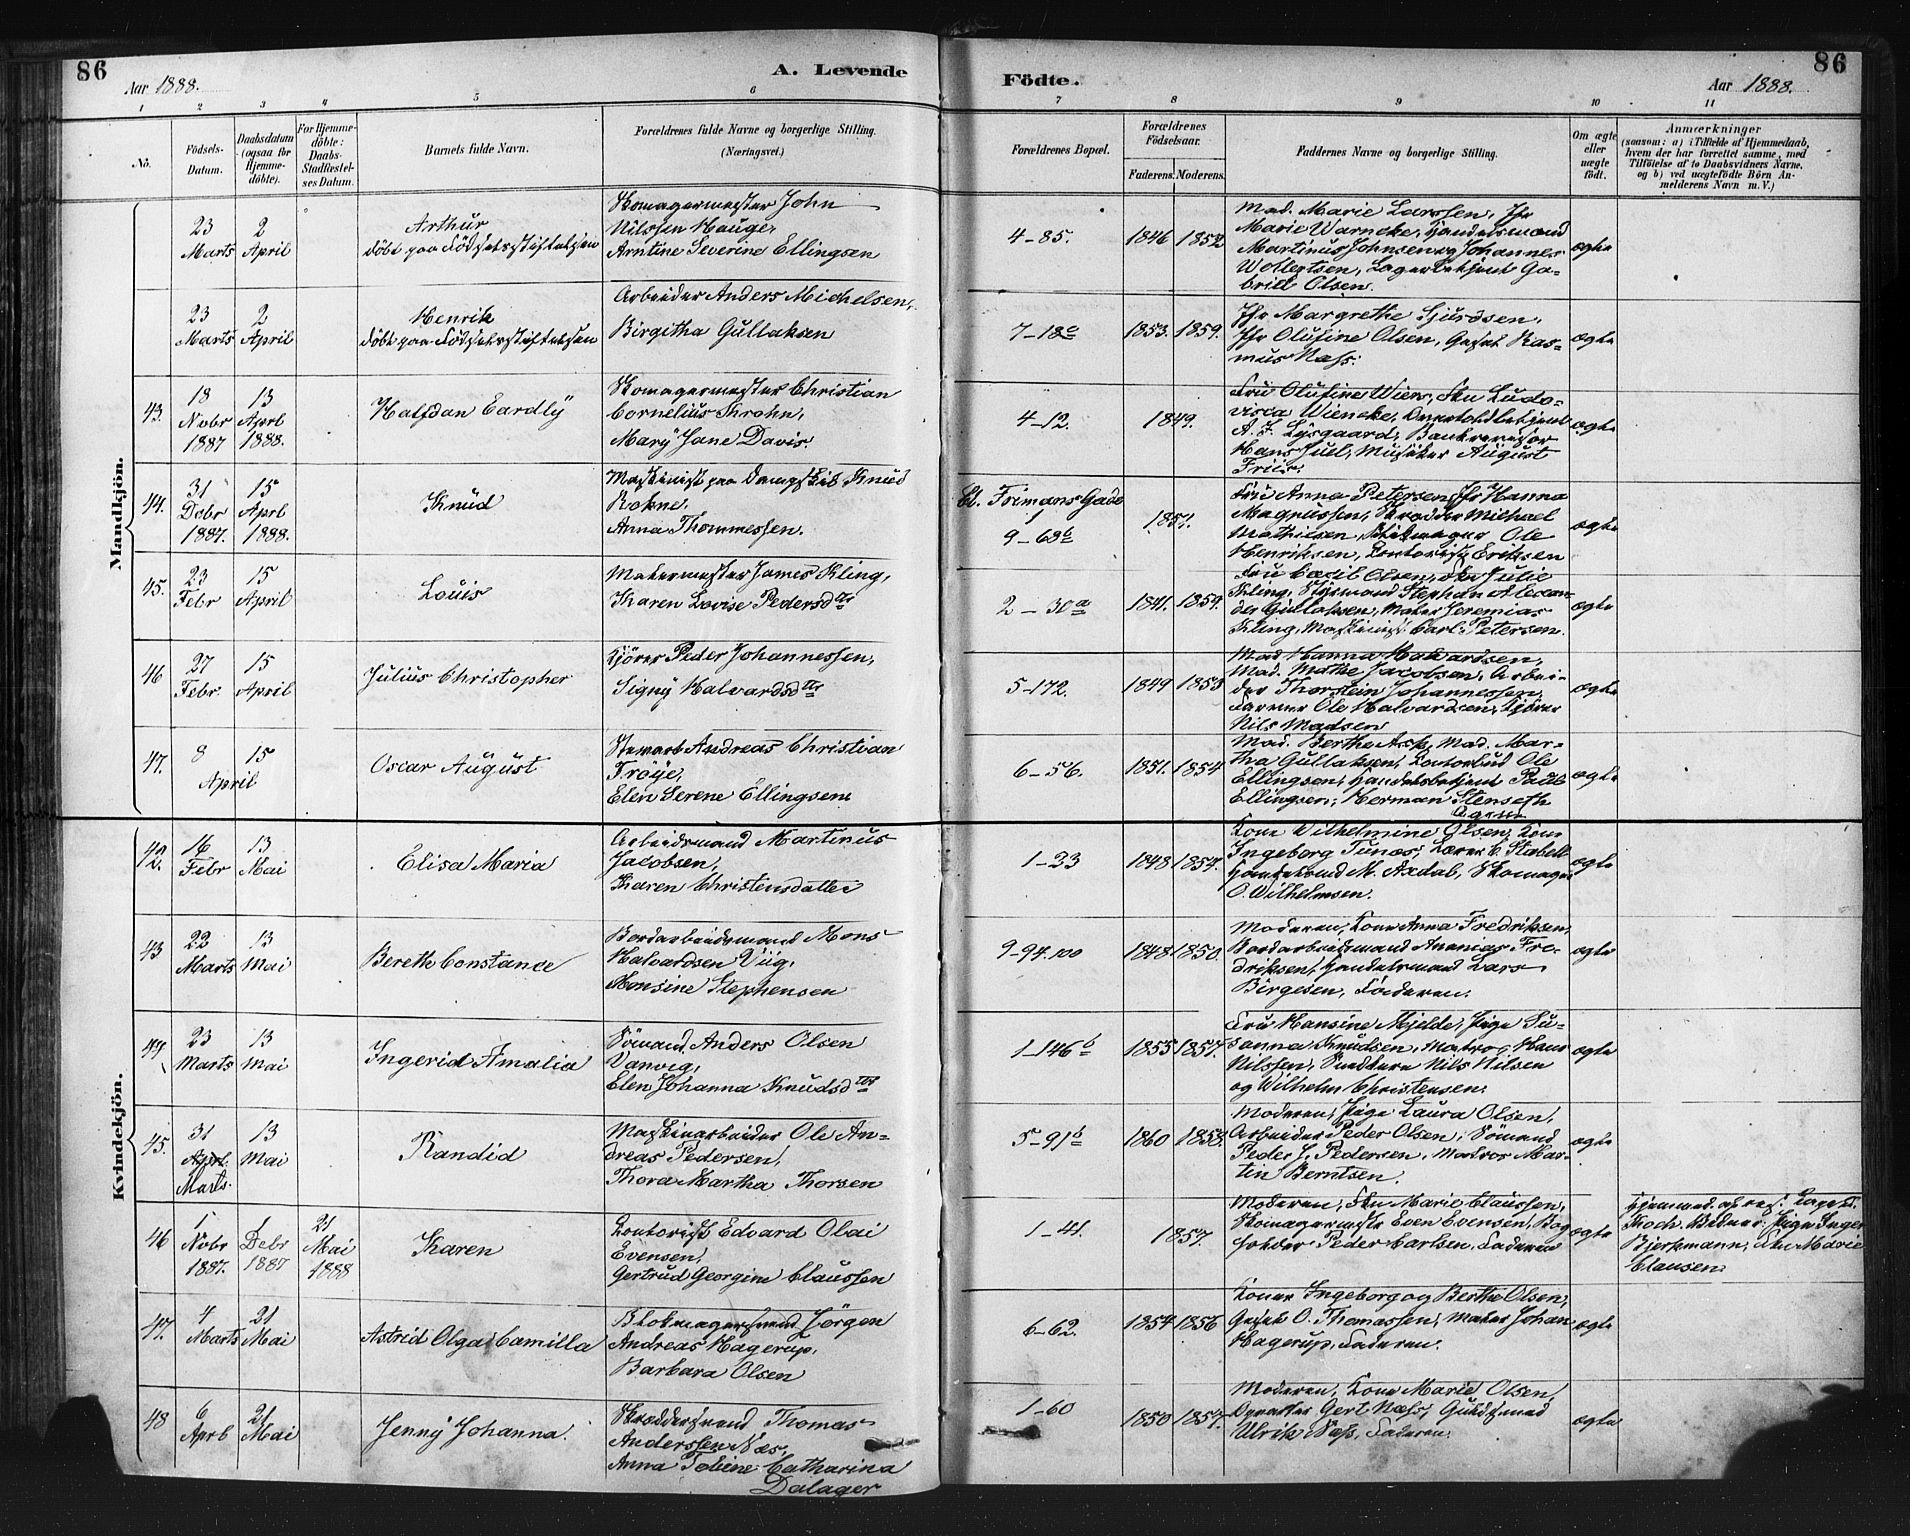 86
Aar 1888.
A. Levende
Födte.
Aar 1888.
86
1 2 3 4 5 6 7 8 9 10 11
No.
Födsels-
Datum.
Daabsdatum
(ogsaa for
Hjemme-
döbte).
For Hjemme-
döbte:
Daabs-
Stadfæstel-
ses Datum.
Barnets fulde Navn.
Forældrenes fulde Navne og borgerlige Stilling.
(Næringsvei.)
Forældrenes Bopæl.
Forældrenes
Födselsaar.
Faderens. Moderens.
Faddernes Navne og borgerlige Stilling.
Om ægte
eller
uægte
født.
Anmærkninger
(saasom: a) i Tilfælde af Hjemmedaab,
hvem der har forrettet samme, med
Tilföielse af to Daabsvidners Navne,
og b) ved uægtefödte Börn An-
melderens Navn m. V.)
Mandkjön.
23 Marts
2 April
Arthur
döbt paa Födselsstiftelsen
Skomagermester John
Nilssen Hauge,
Arntine Severine Ellingsen
4-85.
1846 1852
Mad. Marie Larssen, Jfr
Marie Warncke, Handelsmand
Martinus Johnsen og Johannes
Wollertsen, Lagerbetjent Ga-
briel Olsen.
ægte
23 Marts
2 April
Henrik
döbt paa Födselsstiftelsen
Arbeider Anders Michelsen,
Birgitha Gullaksen
7-18c
1853. 1859.
Jfr Margrethe Sjurdsen,
Jfr Olufine Olsen, Gesel Ras-
mus Næss.
ægte
43.
18 Nvbr 1887
13 Aprl 1888.
Halfdan Eardly
Skomagermester Christian
Cornelius Throhn,
Mary Jane Davis.
4-12.
1849.
Fru Olufine Wiers, Frk Ludo-
visca Wiencke, Overtoldbetjent
A. F. Lysgaard, Bankrevisor
Hans Juel, Musiker August
Friis.
ægte
44.
31 Dcbr 1887.
15 Aprl 1888.
Knud
Maskinist paa Dampskib Knud
Rokne,
Anna Thommessen.
Cl. Frimans Gade
9-68c
1857.
Fru Anna Petersen, Jfr Hanna
Magnussen, Skrædder Michael
Mathiesen, Ole
Henriksen, Kontorist Eriksen
ægte
45.
23 Febr
15 April
Louis
Malermester James Kling,
Karen Lovise Pedersdtr
2-30a
1841. 1859.
Fru Cecil Olsen, Frk Julie
Kling, Styrmand Stephan Alexan-
der Gullaksen, Maler Jeremias
Kling, Maskinist Carl Petersen.
ægte
46
27 Febr.
15 April
Julius Christopher
Kjörer Peder Johannessen,
Signy Halvardsdtr
5-172.
1849 1853
Mad Hanna Halvardsen,
Mad. Mathe Jacobsen, Arbei-
der Thorstein Johannessen,
Farver Ole Halvardsen, Kjörer
Nils Madsen
ægte
47.
8 April
15
Oscar August
Stewart Andreas Christian
Fröye,
Elen Serene Ellingsen
6-56.
1851. 1854
Mad. Berthe Ask, Mad. Mar-
tha Gullaksen, Kontorbud Ole
Ellingsen, Handelsbetjent Paul
Ellingsen, Herman Stenseth
Agent
ægte
Kvindekjön.
42.
16 Febr
13 Mai
Elisa Maria
Arbeidsmand Martinus
Jacobsen,
Karen Christensdatter
1-23
1848 1857.
Kone Wilhelmine Olsen, Kone
Ingeborg Tunæs, Lærer C. Stabell
M. Axdal, Skomager
O. Wilhelmsen.
ægte
43
22 Marts
13 Mai
Berethe Constance
Bordarbeidsmand Mons
Halvardsen Viig,
Monsine Stephensen
9-94.100
1848 1850.
Moderen, Kone Anna Fredriksen,
Bordarbeidsmand Ananias Fre-
driksen, Handelsmand Lars
Birgesen, Faderen.
ægte
44
23 Marts
13 Mai
Ingerid Amalia
Sömand Anders Olsen
Vanvig,
Elen Johanna Knudsdtr
1-146b
1855 1857.
Fru Hansine Mjelde, Pige Su-
sanna Knudsen, Matros Hans
Nilssen, Nils Nilsen
og Wilhelm Christensen.
ægte
45.
31 Aprl. Marts.
13 Mai
Randid
Maskinarbeider Ole An-
dreas Pedersen,
Thora Martha Thorsen
5-91b
1860 1858.
Moderen, Pige Laura Olsen,
Arbeider Peder Olsen, Sömand
Peder J. Pedersen, Matros Mar-
tin Berntsen.
ægte
46
1 Nvbr 1887.
1 Debr 1887
21 Mai 1888
Karen
Kontorist Edvard Olai
Evensen,
Gertrud Georgine Claussen
1-41.
1857.
Moderen, Frk Marie Claussen,
Skomagermester Even Evensen, Bog-
holder Peder Carlsen, Faderen
ægte
Hjemmed. af res. Kap.
Koch. Vidner: Pige Inger
Bjerkmann, Frk. Marie
Clausen.
47.
4 Marts
21 Mai
Astrid Olga Camilla
Blokmagersvend Jörgen
Andreas Hagerup,
Barbara Olsen
6-62.
1854 1856
Koner Ingeborg og Berthe Olsen,
Gesel O. Thomassen, Maler Johan
Hagerup, Faderen.
ægte
48
6 Aprl
21 Mai
Jenny Johanna.
Skræddersvend Thomas
Anderssen Næs,
Anna Tobine Catharina
Dalager
1-60
1850 1857.
Moderen, Kone Marie Olsen,
Gert Næss, Guldsmed
Ulrik Næss, Faderen.
ægte